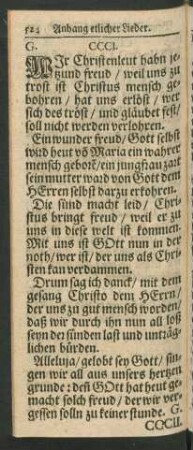 524 Anhang etlicher Lieder.
G. CCCI.
WIr Christenleut habn je-
zund freud / weil uns zu
trost ist Christus mensch ge-
bohren / hat uns erlöst / wer
sich des tröst / und gläubet fest/
soll nicht werden verlohren.
Ein wunder freud / Gott selbst
wird heut vō Maria ein wahrer
mensch geborē / ein jungfrau zart
sein mutter ward von Gott dem
HErren selbst darzu erkohren.
Die sünd macht leid / Chri-
stus bringt freud / weil er zu
uns in diese welt ist kommen.
Mit uns ist GOtt nun in der
noth / wer ist / der uns als Chri-
sten kan verdammen.
Drum sag ich danck / mit dem
gesang Christo dem HErrn /
der uns zu gut mensch worden /
daß wir durch ihn nun all loß
seyn der sünden last und unträg-
lichen bürden.
Alleluja / gelobt sey Gott / sin-
gen wir all aus unsers hertzen
grunde: deñ GOtt hat heut ge-
macht solch freud / der wir ver-
gessen solln zu keiner stunde. G.
CCCII.